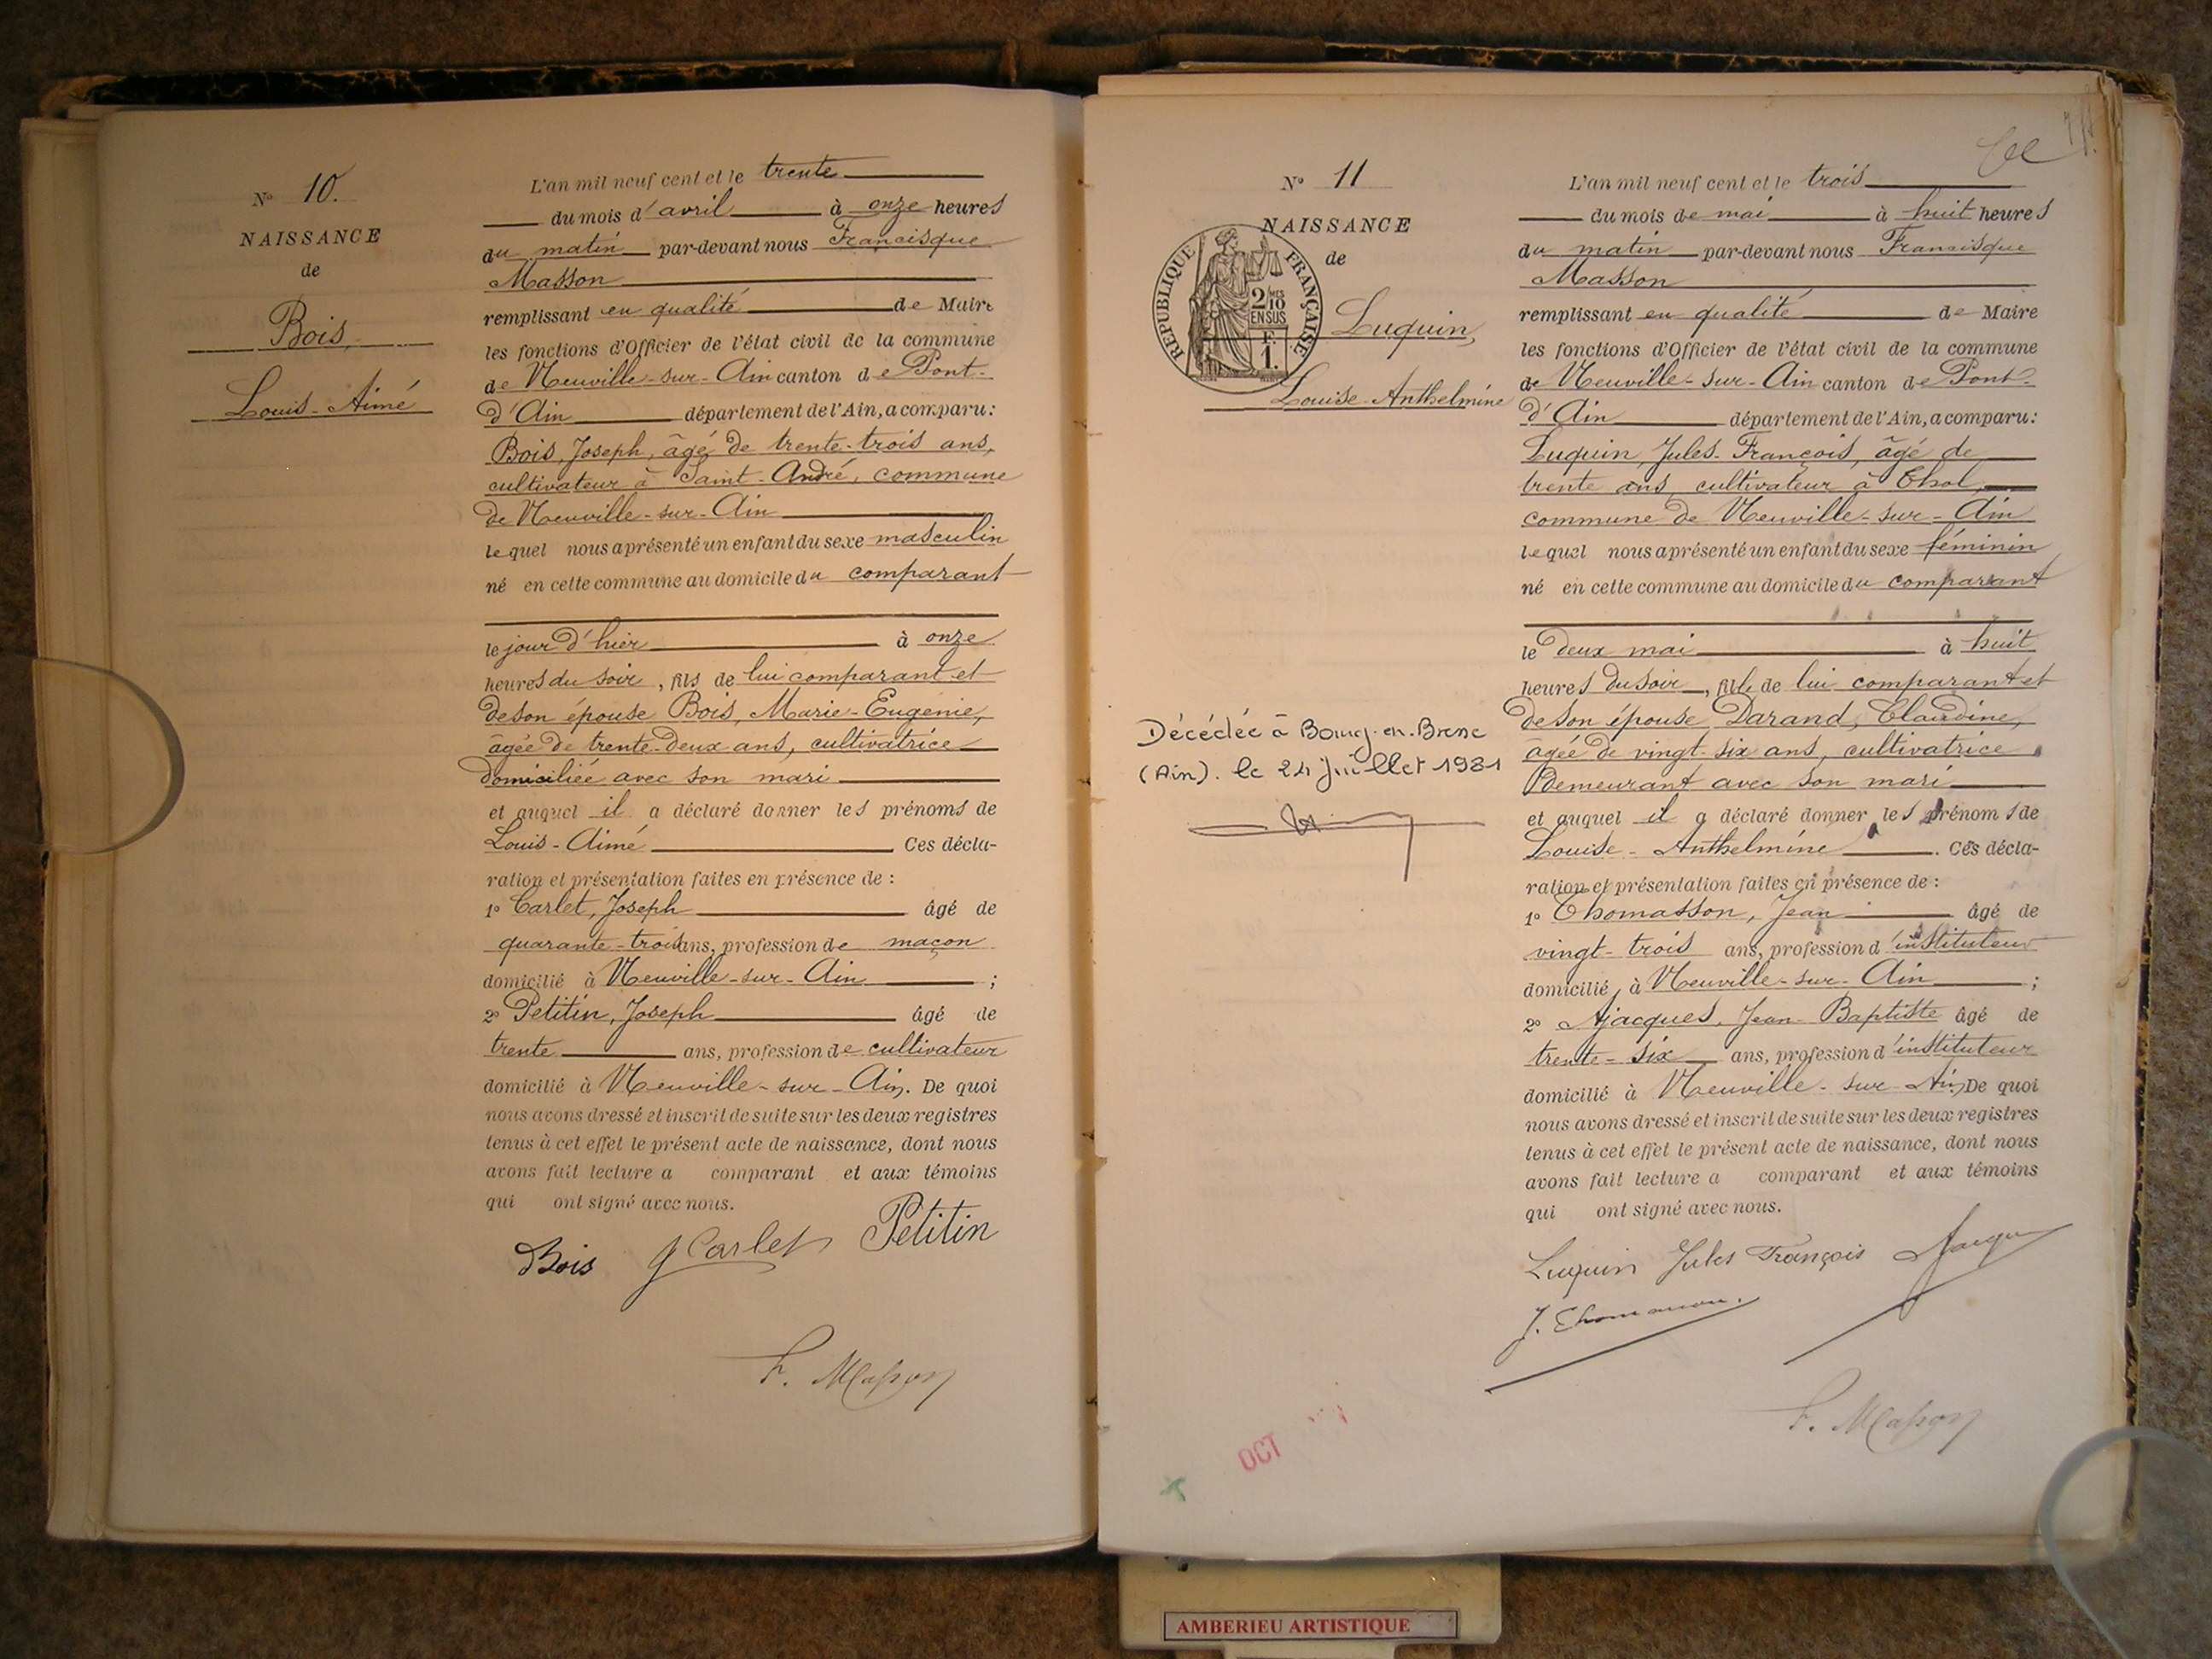 N° 10.
NAISSANCE
de
Bois,
Louis-Aimé
L'an mil neuf cent et le trente
du mois d'avril à onze heures
du matin par-devant nous Francisque
Masson
remplissant en qualité de Maire
les fonctions d'Officier de l'état civil de la commune
de Neuville-sur-Ain canton de Pont-
d'Ain département de l'Ain, a comparu:
Bois, Joseph, âgé de trente-trois ans,
cultivateur à Saint-André, commune
de Neuville-sur-Ain
lequel nous a présenté un enfant du sexe masculin
né en cette commune au domicile du comparant
le jour d'hier à onze
heures du soir, fils de lui comparant et
de son épouse Bois, Marie-Eugénie,
âgée de trente-deux ans, cultivatrice
domiciliée avec son mari
et auquel il a déclaré donner les prénoms de
Louis-Aimé Ces décla-
ration et présentation faites en présence de :
1° Carlet, Joseph âgé de
quarante-trois ans, profession de maçon
domicilié à Neuville-sur-Ain ;
2° Petitin, Joseph âgé de
trente ans, profession de cultivateur
domicilié à Neuville-sur-Ain. De quoi
nous avons dressé et inscrit de suite sur les deux registres
tenus à cet effet le présent acte de naissance, dont nous
avons fait lecture a comparant et aux témoins
qui ont signé avec nous.
Bois J Carlet Petitin
F. Masson
N° 11
NAISSANCE
de
REPUBLIQUE FRANÇAISE
2/10 MES
EN SUS
F.
1.
Luquin,
Louise-Anthelmine
Décédée à Bourg-en-Bresse
(Ain). le 24 juillet 1981
L'an mil neuf cent et le trois
du mois de mai à huit heures
du matin par-devant nous Francisque
Masson
remplissant en qualité de Maire
les fonctions d'Officier de l'état civil de la commune
de Neuville-sur-Ain canton de Pont-
d'Ain département de l'Ain, a comparu:
Luquin, Jules-François, âgé de
trente ans, cultivateur à Thol,
commune de Neuville-sur-Ain
lequel nous a présenté un enfant du sexe féminin
né en cette commune au domicile du comparant
le deux mai à huit
heures du soir, fille de lui comparant et
de son épouse, Darand, Claudine,
agée de vingt-six ans, cultivatrice
demeurant avec son mari
et auquel il a déclaré donner les prénoms de
Louise-Anthelmine. Ces décla-
ration et présentation faites en présence de :
1° Thomasson, Jean âgé de
vingt-trois ans, profession d'instituteur
domicilié à Neuville-sur-Ain ;
2° Ajacques, Jean-Baptiste âgé de
trente-six ans, profession d'instituteur
domicilié à Neuville-sur-Ain, De quoi
nous avons dressé et inscrit de suite sur les deux registres
tenus à cet effet le présent acte de naissance, dont nous
avons fait lecture a comparant et aux témoins
qui ont signé avec nous.
Luquin Jules François
J. Thomasson.
F. Masson
OCT
AMBERIEU ARTISTIQUE